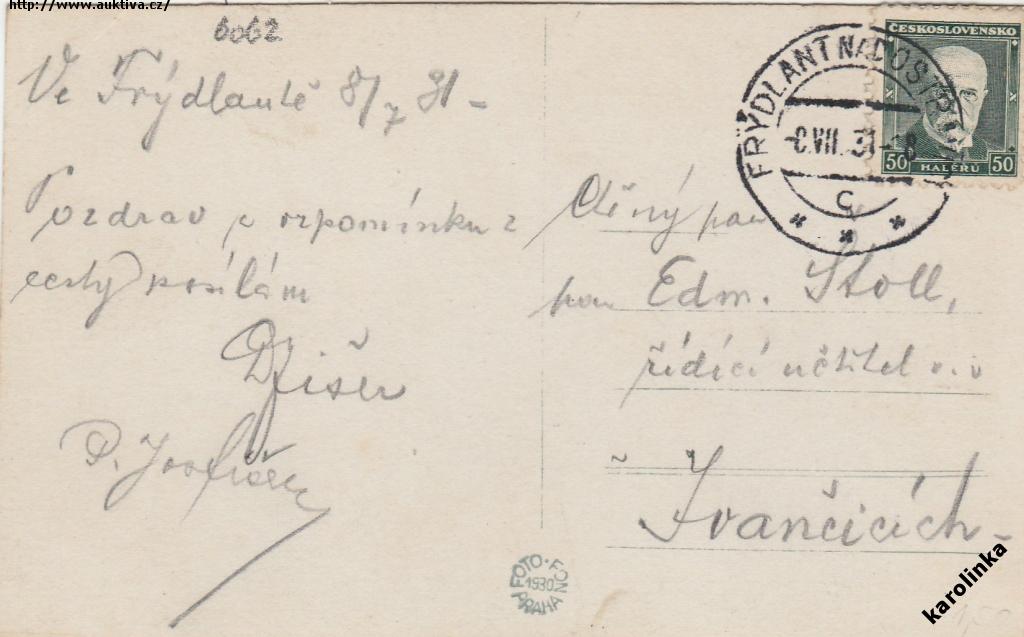 http://www.auktiva.cz/
6062
Ve Frýdlantě 8/7 31 -
Pozdrav a vzpomínku z
cesty posílám
P. Jos
FRÝDLANT NAD OSTRAVICÍ
-8.VII.31-18
C
ČESKOSLOVENSKO
50 HALÉŘŮ 50
Ctěný pan
pan Edm. Stoll,
řídící učitel v.v
v
Ivančicích-
FOTO-FON
1930
PRAHA
karolinka